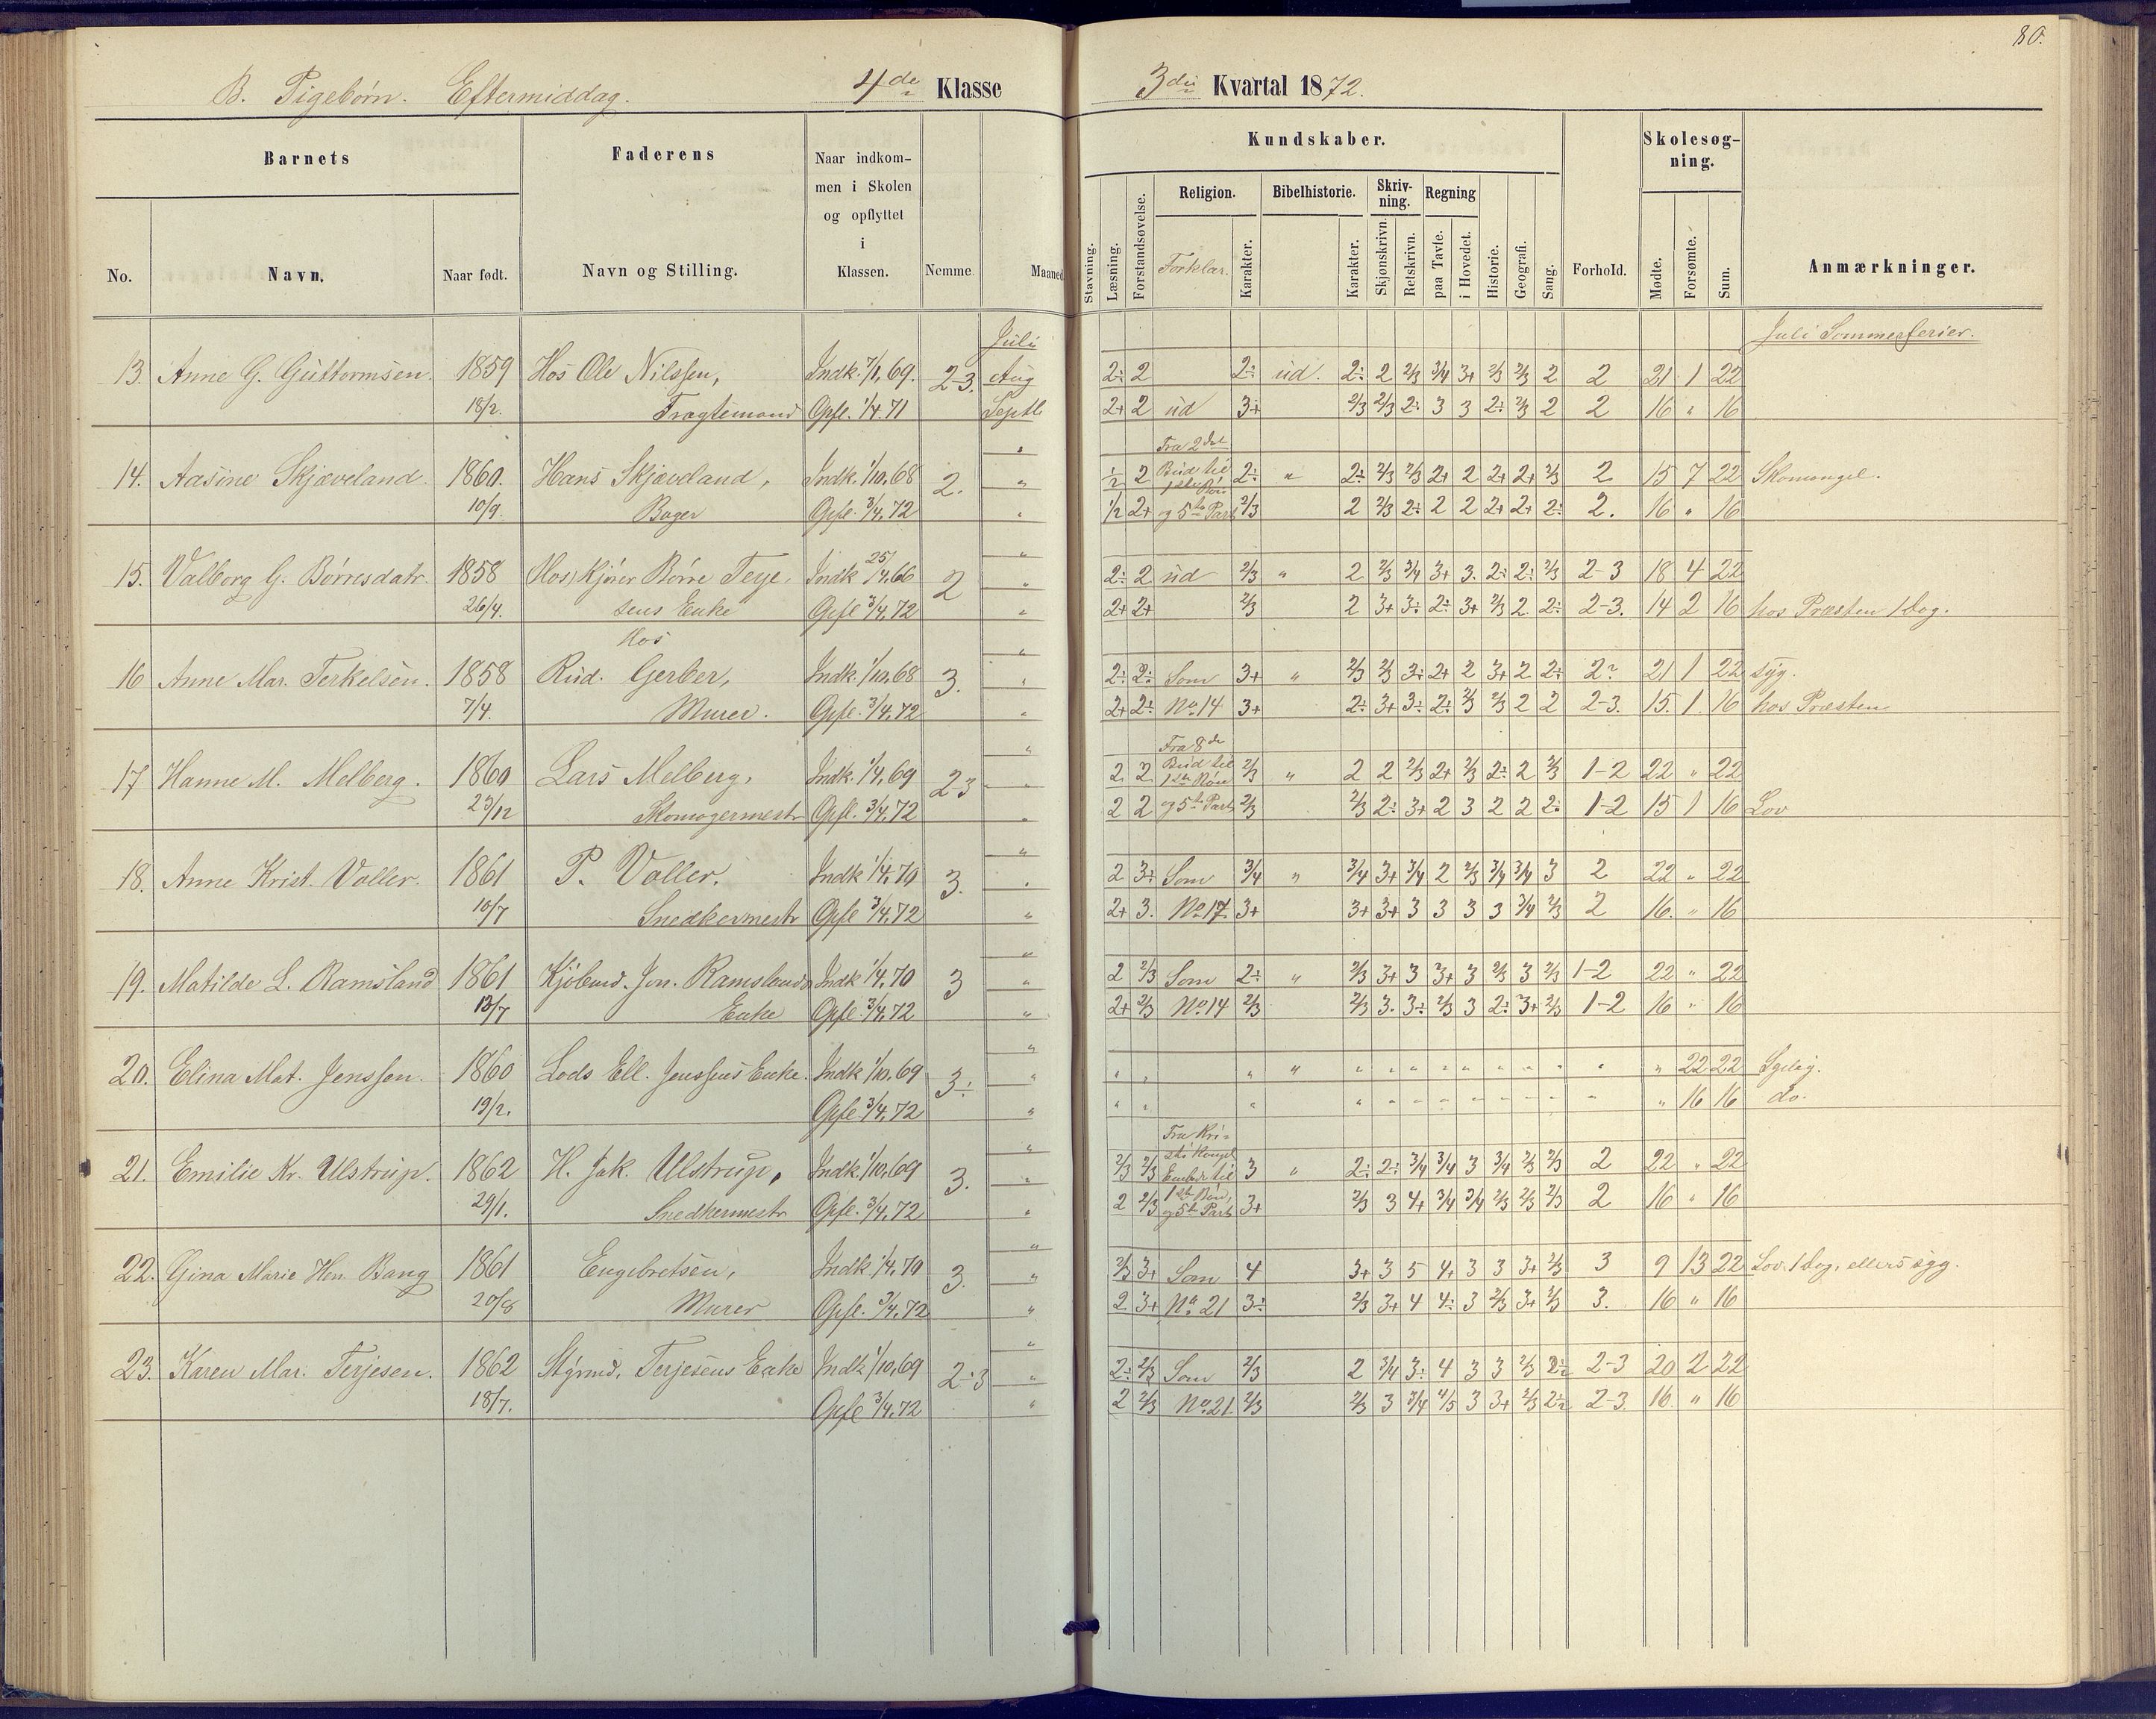 80.
B. Pigebörn. Eftermiddag. 4de Klasse 3die Kvartal 1872.
Barnets Faderens Naar indkom- Kundskaber. Skolesøg-
men i Skolen ning.
og opflyttet Religion. Bibelhistorie. Skriv- Regning
i ning.
No. Navn. Naar født. Navn og Stilling. Klassen. Nemme. Maaned Stavning. Læsning. Forstandsøvelse. Forklar. Karakter. Karakter. Skjønskrivn. Retskrivn. paa Tavle. i Hovedet. Historie. Geografi. Sang. Forhold. Mødte. Forsømte. Sum. Anmærkninger.
Juli Juli Sommerferier.
13. Anne G. Guttormsen. 1859 Hos Ole Nilssen, Indk. 7/1, 69. 2-3. Aug 2÷ 2 2÷ ud. 2÷ 2 2/3 3/4 3+ 2/3 2/3 2 2 21 1 22
18/2. Fragtemand Opfl. 1/4. 71 Septb 2+ 2 ud 3+ 2/3 2/3 2÷ 3 3 2÷ 2/3 2 2 16 " 16
" Fra 2det
14. Aasine Skjæveland. 1860. Hans Skjæveland, Indk. 1/10, 68 2. " 1/2 2 Bud til 2÷ " 2÷ 2/3 2/3 2+ 2 2+ 2+ 2/3 2 15 7 22 Skomangel.
1ste Bön
10/9. Bager Opfl. 3/4, 72 " 1/2 2+ og 5te Part 2/3 2 2/3 2÷ 2 2 2+ 2+ 2÷ 2. 16 " 16
"
15. Valborg G. Börresdatr. 1858 (Hos) Kjører Börre Terje- Indk 25/4, 66 2 " 2÷ 2 ud 2/3 " 2 2/3 3/4 3+ 3. 2÷ 2÷ 2/3 2-3 18 4 22
26/4. sens Enke Opfl 3/4, 72 " 2+ 2+ 2/3 2 3+ 3÷ 2÷ 3+ 2/3 2 2÷ 2-3. 14 2 16 hos Præsten 1 Dag.
Hos "
16 Anne Mar. Terkelsen. 1858 Rud. Gerber, Indk. 1/10, 68 3. " 2÷ 2÷ Som 3+ " 2/3 2/3 3÷ 2+ 2 3+ 2 2÷ 2? 21 1 22 syg.
7/4. Murer. Opfl. 3/4, 72 " 2+ 2÷ No 14 3+ 2÷ 3+ 3÷ 2÷ 2/3 2/3 2 2 2-3. 15. 1. 16 hos Præsten
" Fra 8de
17 Hanne M. Melberg. 1860 Lars Melberg, Indk. 1/4, 69 2-3 " 2 2 Bud til 2/3 " 2 2 2/3 2+ 2/3 2÷ 2 2/3 1-2 22 " 22
1ste Bön
23/12 Skomagermestr Opfl. 3/4, 72 " 2 2 og 5te Part 2/3 2/3 2÷ 3+ 2 3 2 2 2÷ 1-2 15 1 16 Lov
"
18. Anne Krist. Valler. 1861 P. Valler. Indk 1/4, 70 3. " 2 3÷ Som 3/4 " 3/4 3+ 3/4 2 2/3 3/4 3/4 3 2 22 " 22
10/7 Snedkermestr Opfl 3/4, 72 " 2+ 3. No 17. 3+ 3+ 3+ 3 3 3 3 3/4 2/3 2 16. " 16
"
19. Matilde L. Ramsland 1861 Kjöbmd. Jon. Ramslands Indk 1/4, 70 3 " 2 2/3 Som 2÷ " 2/3 3+ 3 3+ 3 2/3 3 2/3 1-2 22 " 22
13/7 Enke Opfl. 3/4, 72 " 2+ 2/3 No 14 2/3 2/3 3. 3÷ 2/3 3 2÷ 3+ 2/3 1-2 16 " 16
"
20. Elina Mat. Jenssen. 1860 Lods Ell. Jenssens Enke. Indk 1/10, 69 3÷ " " " " " " " " " " " " " " " 22 22 Sgelig.
19/2. Opfl 3/4, 72 " " " " " " " " " " " " " " " 16 16 do.
" Fra Kri-
sti Konge
21. Emilie Kr. Ulstrup. 1862 H. Jak. Ulstrup, Indk. 1/10, 69 3. " 2/3 2/3 Embede til 3 " 2÷ 2÷ 3/4 3/4 3 3/4 2/3 2/3 2 22 " 22
1ste Bön,
29/1. Snedkermestr Opfl. 3/4, 72 " 2 2/3 og 5te Part 3+ 2/3 3 4+ 3/4 3/4 2/3 2/3 2/3 2 16 " 16
"
22. Gina Marie Hen. Bang 1861 Engebretsen, Indk 1/4, 70 3. " 2/3 3+ Som 4 3+ 3 5 4+ 3 3 3+ 2/3 3 9 13 22 Lov 1 Dag, ellers syg.
20/8 Murer Opfl. 3/4, 72 " 2 3+ No 21 3÷ 2/3 3+ 4 4÷ 3 2/3 3+ 2/3 3. 16 " 16
"
23. Karen Mar. Terjesen. 1862 Styrmd. Terjesens Enke Indk 1/10, 69 2-3 " 2÷ 2/3 Som 2/3 2 3/4 3÷ 4 3 3 2/3 2÷ 2-3 20 2 22
18/7. Opfl 3/4, 72 " 2 2/3 No 21. 2/3 2/3 3 3/4 4/5 3 3+ 2/3 2÷ 2-3. 16. " 16